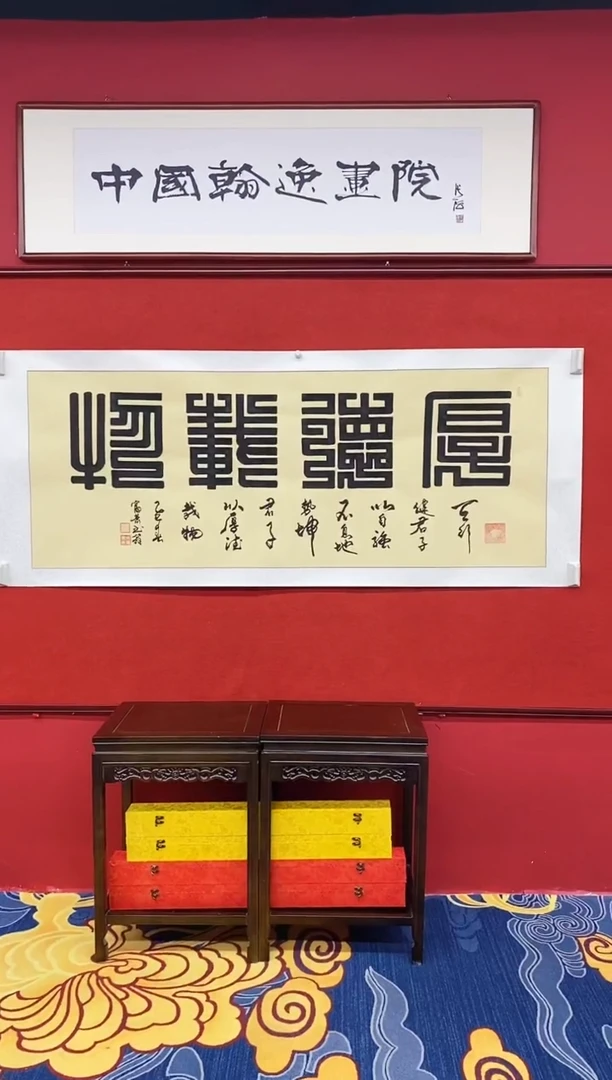 中國翰逸畫院
厚德載物
天行
健君子
以自強
不息地
勢坤
君子
以厚德
載物
乙巳春